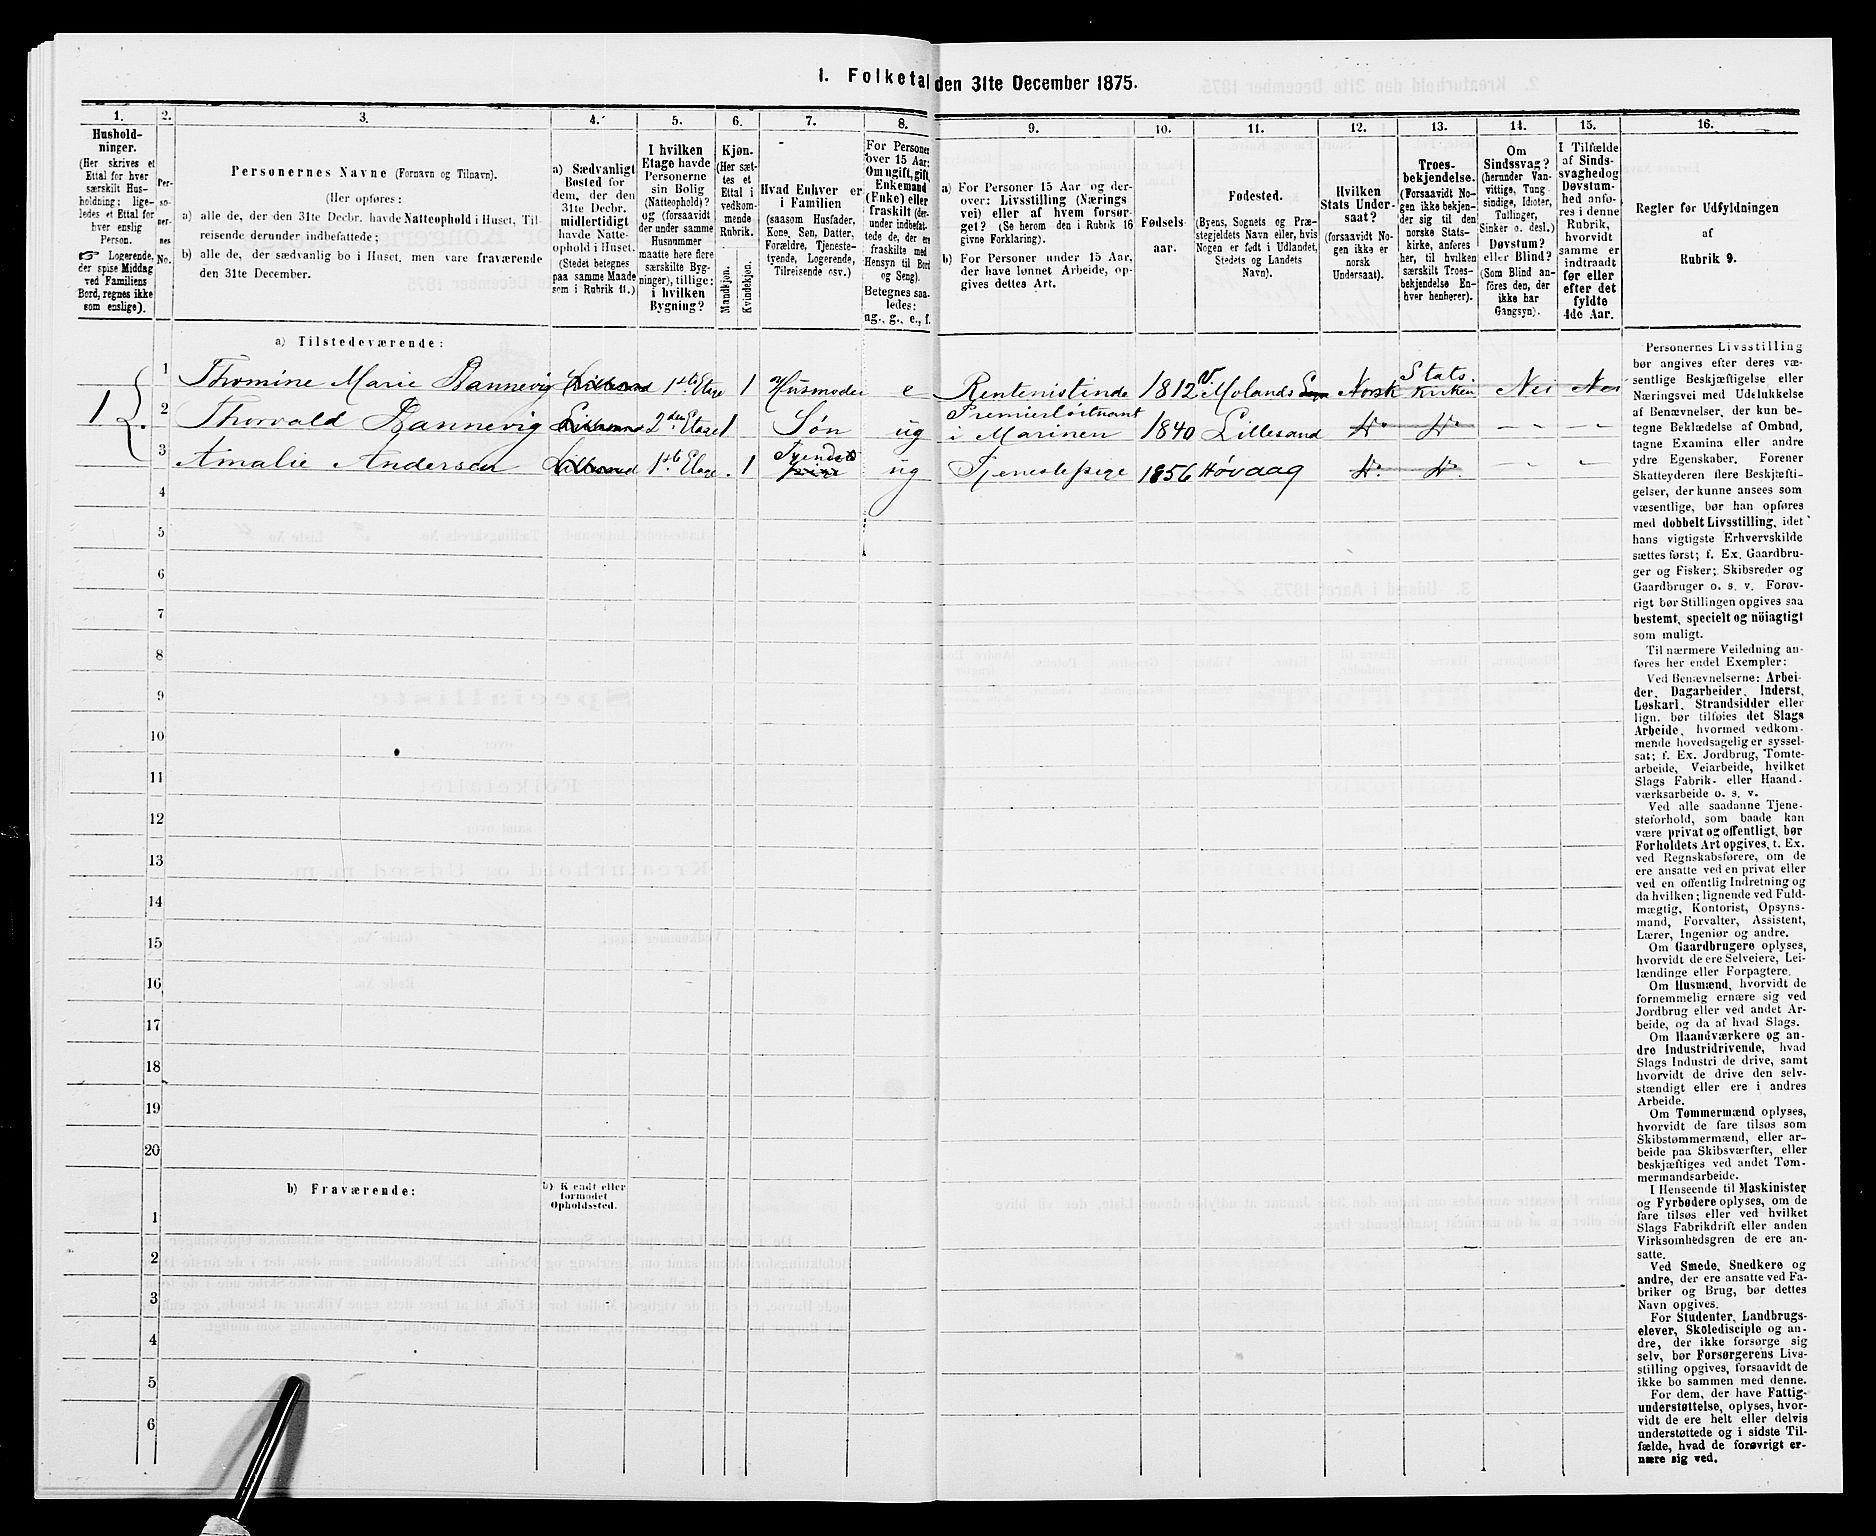 1. Folketal den 31te December 1875.
1.
2.
3.
4.
5.
6.
7.
8.
9.
10.
11.
12.
13.
14.
15.
16.
Hushold-
ninger.
(Her skrives et
Ettal for hver
særskilt Hus-
holdning; lige-
ledes et Ettal for
hver enslig
Person.
☞ Logerende,
der spise Middag
ved Familiens
Bord, regnes ikke
som enslige).
Per-
so-
ner-
nes
No.
Personernes Navne (Fornavn og Tilnavn).
(Her opføres:
a) alle de, der den 31te Decbr. havde Natteophold i Huset, Til-
reisende derunder indbefattede;
b) alle de, der sædvanlig bo i Huset, men vare fraværende
den 31te December.
a) Sædvanligt
Bosted for
dem, der den
31te Decbr.
midlertidigt
havde Natte-
ophold i Huset.
(Stedet betegnes
paa samme Maade
som i Rubrik 11.)
I hvilken
Etage havde
Personerne
sin Bolig
(Natteophold)?
og (forsaavidt
der under samme
Husnummer
maatte høre flere
særskilte Byg-
ninger), tillige:
i hvilken
Bygning?
Kjøn.
(Her sæt-
tes et
Ettal i
vedkom-
mende
Rubrik.
Mandkjøn.
Kvindekjøn.
Hvad Enhver er
i Familien
(saasom Husfader,
Kone, Søn, Datter,
Forældre, Tjeneste-
tyende, Logerende,
Tilreisende osv.)
For Personer
over 15 Aar:
Om ugift, gift,
Enkemand
(Enke) eller
fraskilt (der-
under indbefat-
tede de, der ere
fraskilte med
Hensyn til Bord
og Seng).
Betegnes saa-
ledes:
ug., g., e., f.
a) For Personer 15 Aar og der-
over: Livsstilling (Nærings
vei) eller af hvem forsør-
get? (Se herom den i Rubrik 16
givne Forklaring).
b) For Personer under 15 Aar,
der have lønnet Arbeide, op-
gives dettes Art.
Fødsels-
aar.
Fødested.
(Byens, Sognets og Præ-
stegjeldets Navn eller, hvis
Nogen er født i Udlandet,
Stedets og Landets
Navn).
Hvilken
Stats Under-
saat?
(forsaavidt No-
gen ikke er
norsk
Undersaat).
Troes-
bekjendelse.
(Forsaavidt No-
gen ikke bekjen-
der sig til den
norske Stats-
kirke, anføres
her, til hvilken
særskilt Troes-
bekjendelse En-
hver henhører).
Om
Sindssvag?
(herunder Van-
vittige, Tung-
sindige, Idioter,
Tullinger,
Sinker o. desl.)
Døvstum?
eller Blind?
(Som Blind an-
føres den, der
ikke har
Gangsyn).
I Tilfælde
af Sinds-
svaghed og
Døvstum-
hed anfø-
res i denne
Rubrik,
hvorvidt
samme er
indtraadt
før eller
efter det
fyldte
4de Aar.
Regler for Udfyldningen
af
Rubrik 9.
a) Tilstedeværende:
1 1 Thomine Marie Bannevig Lillesand 1ste Etage 1 Husmoder e Rentenistinde 1812 V. Molands Norsk Stats. Kirken Nei Nei
2 Thorvald Bannevig Lillesand 2den Etage 1 Søn ug Premierløitnant i Marinen 1840 Lillesand Do Do - - -
3 Amalie Andersen Lillesand 1ste Etage 1 ug Tjenestepige 1856 Høvaag Do. Do. - - -
4
5
6
7
8
9
10
11
12
13
14
15
16
17
18
19
20
b) Fraværende:
b) Kjendt eller
formodet
Opholdssted.
1
2
3
4
5
6
Personernes Livsstilling
bør angives efter deres væ-
sentlige Beskjæftigelse eller
Næringsvei med Udelukkelse
af Benævnelser, der kun be-
tegne Beklædelse af Ombud,
tagne Examina eller andre
ydre Egenskaber. Forener
Skatteyderen flere Beskjæfti-
gelser, der kunne ansees som
væsentlige, bør han opføres
med dobbelt Livsstilling, idet
hans vigtigste Erhvervskilde
sættes først; f. Ex. Gaardbru-
ger og Fisker; Skibsreder og
Gaardbruger o. s. v. Forøv-
rigt bør Stillingen opgives saa
bestemt, specielt og nöiagtigt
som muligt.
Til nærmere Veiledning an-
føres her endel Exempler:
Ved Benævnelserne: Arbei-
der, Dagarbeider, Inderst,
Løskarl, Strandsidder eller
lign. bør tilføies det Slags
Arbeide, hvormed vedkom-
mende hovedsagelig er syssel-
sat; f. Ex. Jordbrug, Tomte-
arbeide, Veiarbeide, hvilket
Slags Fabrik- eller Haand-
værksarbeide o. s. v.
Ved alle saadanne Tjene-
steforhold, som baade kan
være privat og offentligt, bør
Forholdets Art opgives, t. Ex.
ved Regnskabsførere, om de
ere ansatte ved en privat eller
ved en offentlig Indretning og
da hvilken; lignende ved Fuld-
mægtig, Kontorist, Opsyns-
mand, Forvalter, Assistent,
Lærer, Ingeniør og andre.
Om Gaardbrugere oplyses,
hvorvidt de ere Selveiere, Lei-
lændinge eller Forpagtere.
Om Husmænd, hvorvidt de
fornemmelig ernære sig ved
Jordbrug eller ved andet Ar-
beide, og da af hvad Slags.
Om Haandværkere og an-
dre Industridrivende, hvad
Slags Industri de drive, samt
hvorvidt de drive den selv-
stændigt eller ere i andres
Arbeide.
Om Tømmermænd oplyses,
hvorvidt de fare tilsøs som
Skibstømmermænd, eller ar-
beide paa Skibsværfter, eller
beskjæftiges ved andet Tøm-
mermandsarbeide.
I Henseende til Maskinister
og Fyrbødere oplyses, om de
fare tilsøs eller ved hvilket
Slags Fabrikdrift eller anden
Virksomhedsgren de ere an-
satte.
Ved Smede, Snedkere og
andre, der ere ansatte ved Fa-
briker og Brug, bør dettes
Navn opgives.
For Studenter, Landbrugs-
elever, Skoledisciple og an-
dre, der ikke forsørge sig
selv, bør Forsørgerens Livs-
stilling opgives, forsaavidt de
ikke bo sammen med denne.
For dem, der have Fattig-
understøttelse, oplyses, hvor-
vidt de ere helt eller delvis
understøttede og i sidste Til-
fælde, hvad de forøvrigt er-
nære sig ved.